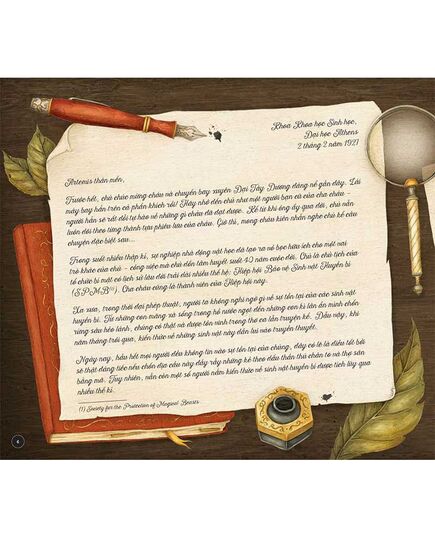 Khoa Khoa học Sinh học,
Đại học Athens
2 tháng 2 năm 1927
Artemis thân mến,
Trước hết, chú chúc mừng cháu và chuyến bay xuyên Đại Tây Dương đáng nể gần đây. Lái
máy bay hẳn trên cả phấn khích rồi! Hãy nhớ đến chú như một người bạn cũ của cha cháu –
người hẳn sẽ rất đỗi tự hào về những gì cháu đã đạt được. Kể từ khi ông ấy qua đời, chú vẫn
luôn dõi theo từng thành tựu phiêu lưu của cháu. Giờ thì, mong cháu kiên nhẫn nghe chú kể câu
chuyện đặc biệt sau...
Trong suốt nhiều thập kỉ, sự nghiệp nhà động vật học đã tạo ra vỏ bọc hữu ích cho một vai
trò khác của chú – công việc mà chú dồn tâm huyết suốt 40 năm cuộc đời. Chú là chủ tịch của
tổ chức bí mật có lịch sử lâu đời trải dài nhiều thế hệ: Hiệp hội Bảo vệ Sinh vật Huyền bí
(SPMB⁽¹⁾). Cha cháu cũng là thành viên của Hiệp hội này.
Xa xưa, trong thời đại phép thuật, người ta không nghi ngờ gì về sự tồn tại của các sinh vật
huyền bí. Từ những con măng xà sống trong hồ nước ngọt đến những con kì lân ẩn mình chốn
rừng sâu hẻo lánh, chúng có thật và được tôn vinh trong thơ ca lẫn truyện kể. Dẫu vậy, khi
năm tháng trôi qua, kiến thức về những sinh vật này dần lùi vào truyền thuyết.
Ngày nay, hầu hết mọi người đều không tin vào sự tồn tại của chúng, đây có lẽ là điều tốt bởi
sẽ thật đáng tiếc nếu chốn địa cầu này đầy rẫy những kẻ theo dấu thần thú chân to và thợ săn
băng mã. Tuy nhiên, vẫn còn một số người nắm kiến thức về sinh vật huyền bí được tích lũy qua
nhiều thế kỉ.
(1) Society for the Protection of Magical Beasts